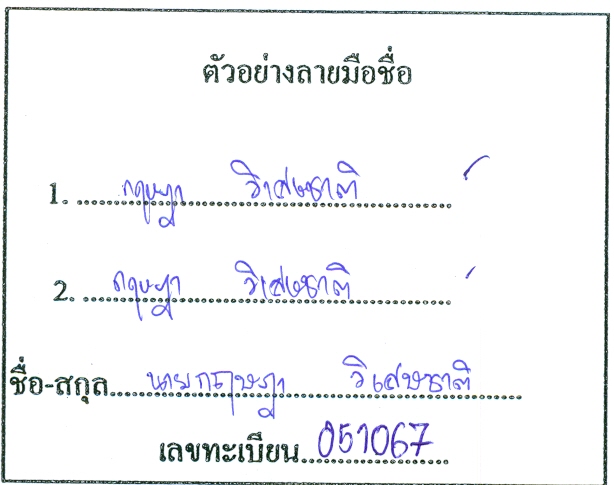 ตัวอย่างลายมือชื่อ
1. กฤษฎา วิเศษชาติ
2. กฤษฎา วิเศษชาติ
ชื่อ-สกุล นายกฤษฎา วิเศษชาติ
เลขทะเบียน 051067